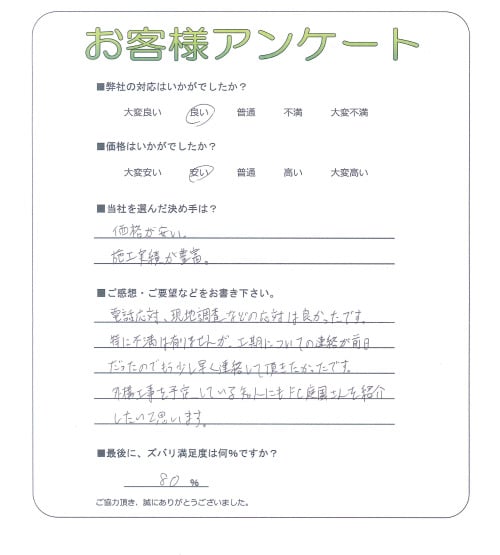 お客様アンケート
■弊社の対応はいかがでしたか?
大変良い 良い 普通 不満 大変不満
■価格はいかがでしたか?
大変安い 安い 普通 高い 大変高い
■当社を選んだ決め手は?
価格が安い。
施工実績が豊富。
■ご感想・ご要望などをお書き下さい。
電話応対、現地調査などの応対は良かったです。
特に不満は有りませんが、工期についての連絡が前日
だったのでもう少し早く連絡して頂きたかったです。
外構工事を予定している知人にもFC庭園さんを紹介
したいと思います。
■最後に、ズバリ満足度は何%ですか?
80 %
ご協力頂き、誠にありがとうございました。